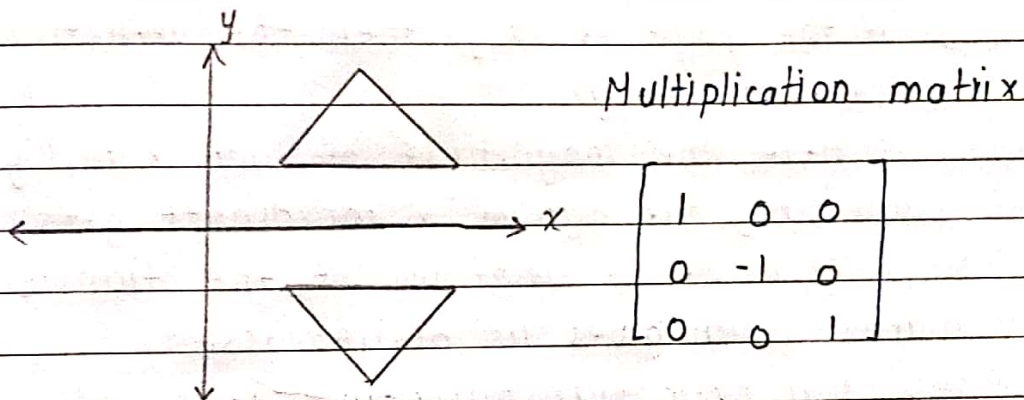 y
Multiplication matrix
x
1 0 0
0 -1 0
0 0 1